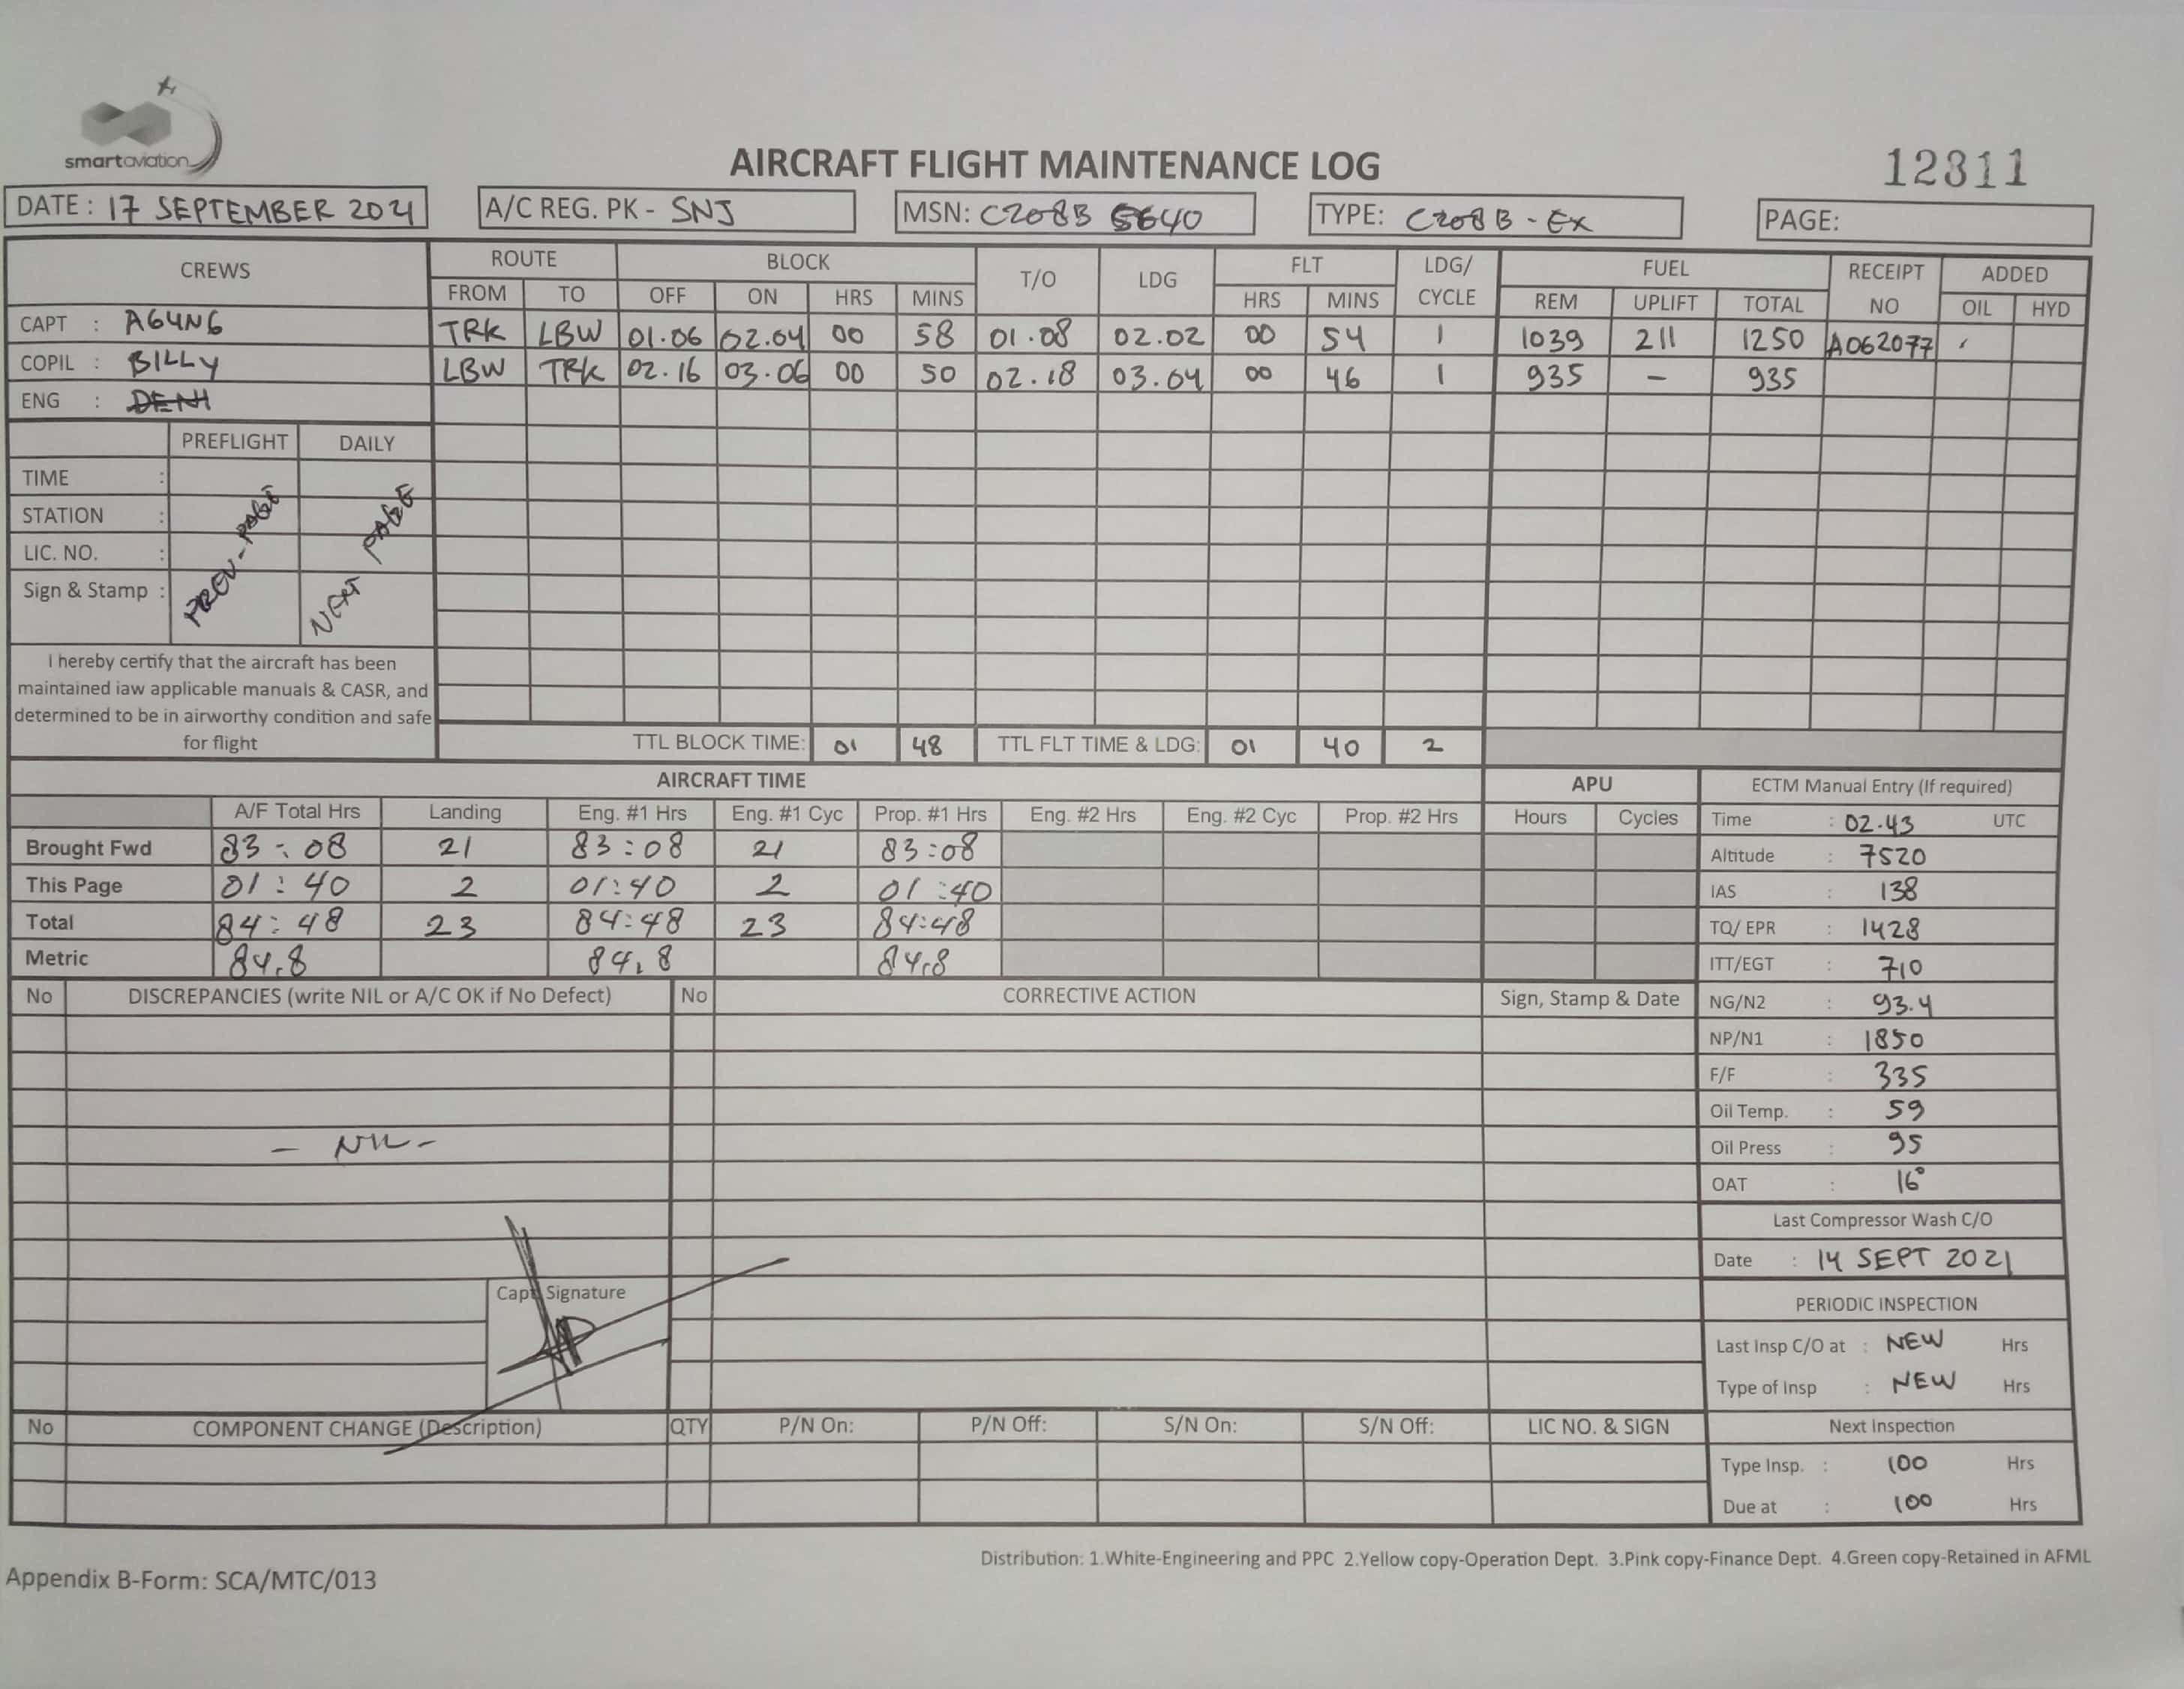 smartaviation
AIRCRAFT FLIGHT MAINTENANCE LOG
12311
DATE : 17 SEPTEMBER 2021
A/C REG. PK - SNJ
MSN: C208B 5640
TYPE: C208B - EX
PAGE:
CREWS ROUTE BLOCK T/O LDG FLT LDG/ CYCLE FUEL RECEIPT NO ADDED
FROM TO OFF ON HRS MINS HRS MINS REM UPLIFT TOTAL OIL HYD
CAPT : AGUNG TRK LBW 01.06 02.04 00 58 01.08 02.02 00 54 1 1039 211 1250 A062077
COPIL : BILLY LBW TRK 02.16 03.06 00 50 02.18 03.04 00 46 1 935 - 935
ENG :
PREFLIGHT DAILY
TIME :
STATION :
LIC. NO. :
Sign & Stamp :
PREV - PAGE
NEXT PAGE
I hereby certify that the aircraft has been
maintained iaw applicable manuals & CASR, and
determined to be in airworthy condition and safe
for flight
TTL BLOCK TIME: 01 48 TTL FLT TIME & LDG: 01 40 2
AIRCRAFT TIME APU
A/F Total Hrs Landing Eng. #1 Hrs Eng. #1 Cyc Prop. #1 Hrs Eng. #2 Hrs Eng. #2 Cyc Prop. #2 Hrs Hours Cycles
Brought Fwd 83 : 08 21 83 : 08 21 83 : 08
This Page 01 : 40 2 01:40 2 01 :40
Total 84 : 48 23 84:48 23 84:48
Metric 84.8 84.8 84.8
ECTM Manual Entry (If required)
Time : 02.43 UTC
Altitude : 7520
IAS : 138
TQ/ EPR : 1428
ITT/EGT : 710
NG/N2 : 93.4
NP/N1 : 1850
F/F : 335
Oil Temp. : 59
Oil Press : 95
OAT : 16°
Last Compressor Wash C/O
Date : 14 SEPT 2021
PERIODIC INSPECTION
Last Insp C/O at : NEW Hrs
Type of Insp : NEW Hrs
Next Inspection
Type Insp. : 100 Hrs
Due at : 100 Hrs
No DISCREPANCIES (write NIL or A/C OK if No Defect) No CORRECTIVE ACTION Sign, Stamp & Date
- NIL -
Capt Signature
No COMPONENT CHANGE (Description) QTY P/N On: P/N Off: S/N On: S/N Off: LIC NO. & SIGN
Distribution: 1.White-Engineering and PPC 2.Yellow copy-Operation Dept. 3.Pink copy-Finance Dept. 4.Green copy-Retained in AFML
Appendix B-Form: SCA/MTC/013